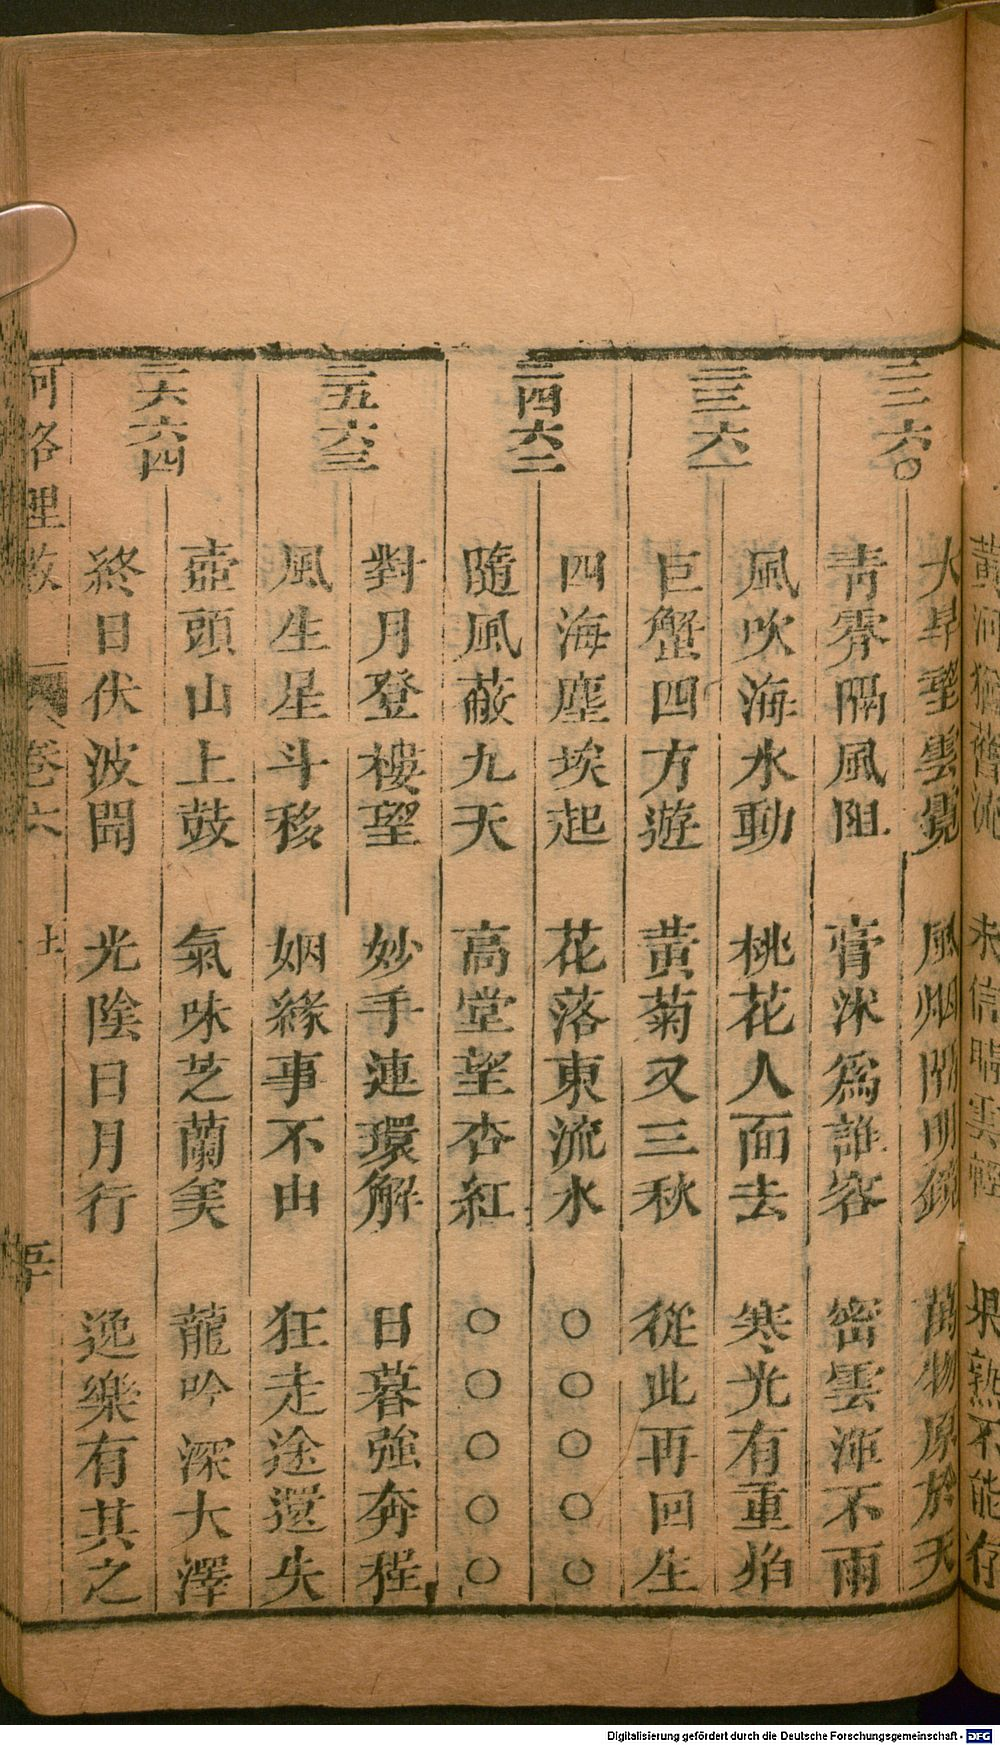 黃河 舊流 未信晴雲輕 果熟不能存
三二六〇
大旱望雲霓 風烟開明鏡 萬物原於天
青霽隔風阻 膏沐為誰容 密雲渾不雨
三三六一
風吹海水動 桃花人面去 寒光有重焰
巨蟹四方遊 黃菊又三秋 從此再回生
三四六二
四海塵埃起 花落東流水 〇〇〇〇〇
隨風蔽九天 高堂望杏紅 〇〇〇〇〇
三五六三
對月登樓望 妙手連環解 日暮強奔程
風生星斗移 姻緣事不由 狂走途還失
三六六四
壺頭山上鼓 氣味芝蘭美 龍吟深大澤
終日伏波聞 光陰日月行 逸樂有其之
河洛理數 卷六
Digitalisierung gefördert durch die Deutsche Forschungsgemeinschaft - DFG